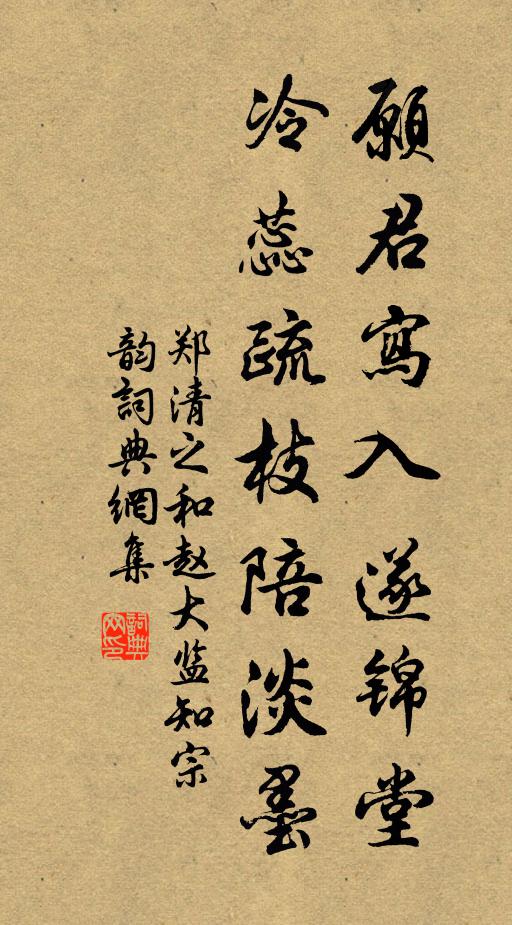 願君寫入遂錦堂
冷蕊疏枝陪淡墨
郑清之和赵大监知宗
韵詞典網集
詞典網印